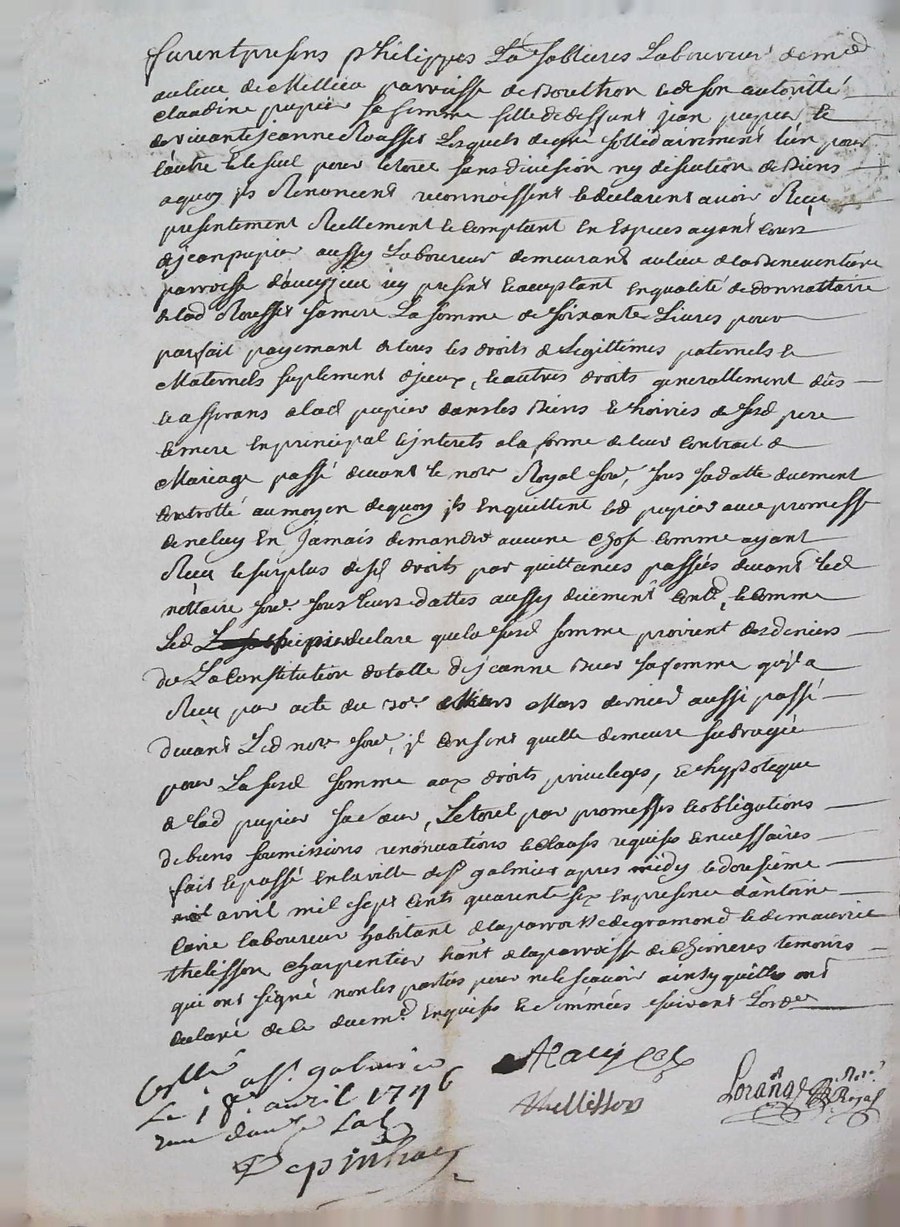 furent presens philippes La sablieres Laboureur demt
au lieu de Meillieu parroisse de Boulthon & de son autoritté
claudine pupier sa femme fille de deffunt jean pupier &
de vivante jeanne Rousset Lesquels de gré sollidairement l'un pour
l'autre & le seul pour le toral sans division ny discution de Biens
aquoy jls Renoncent reconnoissent & declarent avoir Receu
presentement Reellement & comptant en Especes ayant cours
de jean pupier aussy Laboureur demeurant au lieu de la
parroisse d'aveyzieu icy present & acceptant en qualité de donnattaire
de lad Rousset sa mere La somme de soixante Livres pour
parfait payemant de tous les droits de Legittimes paternels &
Maternels suplement djceux, & autres droits generallement dûs
& afferans a lad pupier dans les Biens & hoiries de sesd pere
& mere en principal & jnterets a la forme de leur contract de
Mariage passé devant le nore Royal sousé, sous sa datte duement
controllé au moyen de quoy jls en quittent led pupier avec promesse
de ne luy En jamais demander aucune chose comme ayant
Receu le surplus desd droits par quittances passées devant led
nottaire sousé sous leurs dattes aussy düement contlées, & comme
Led declare que la susd somme provient des deniers
de La Constitution dotalle de jeanne sa femme qu'jl a
Receu par acte du Mars dernier aussi passé
devant Led nore sousé, jl consent quelle demeure subrogée
pour La susd somme aux droits, privileges, & hypoteque
de lad pupier sa sœur, & toral par promesses & obligations
de biens soumissions renonciations & clauses requises & necessaires
fait & passé en la ville de st galmier apres midy le dousieme
avril mil sept cents quarente six en presence d'antoine
laboureur habitant de la parroisse de gramond & de maurice
thelisson charpentier habt de la parroisse de chevrieres temoins
qui ont signé non les parties pour ne le scavoir ainsy quelles ont
declaré de ce duemt enquises & sommées suivant Lordce
Collé a st galmier
Le 18e avril 1746
recu douze sols
Thellisson
Lorange Nore Royal